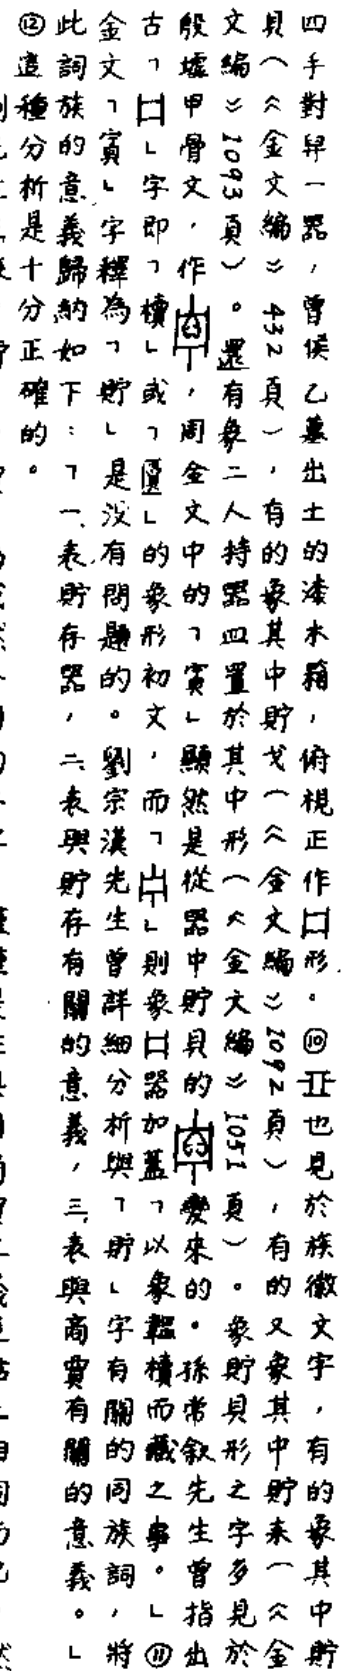 四手對舁一器，曾侯乙墓出土的漆木箱，俯視正作口形。⑩亞也見於族徽文字，有的象其中貯
貝（《金文編》432頁），有的象其中貯戈（《金文編》1092頁），有的又象其中貯來（《金
文編》1093頁）。還有象二人持器皿置於其中形（《金文編》1051頁）。象貯貝形之字多見於
殷墟甲骨文，作，周金文中的「賓」顯然是從器中貯貝的變來的。孫常敘先生曾指出
古「」字即「櫝」或「匵」的象形初文，而「」則象器加蓋「以象韞櫝而藏之事。」⑪
金文「賓」字釋為「貯」是沒有問題的。劉宗漢先生曾詳細分析與「貯」字有關的同族詞，將
此詞族的意義歸納如下：「一、表貯存器，二、表與貯存有關的意義，三、表與商賈有關的意義。」
⑫這種分析是十分正確的。